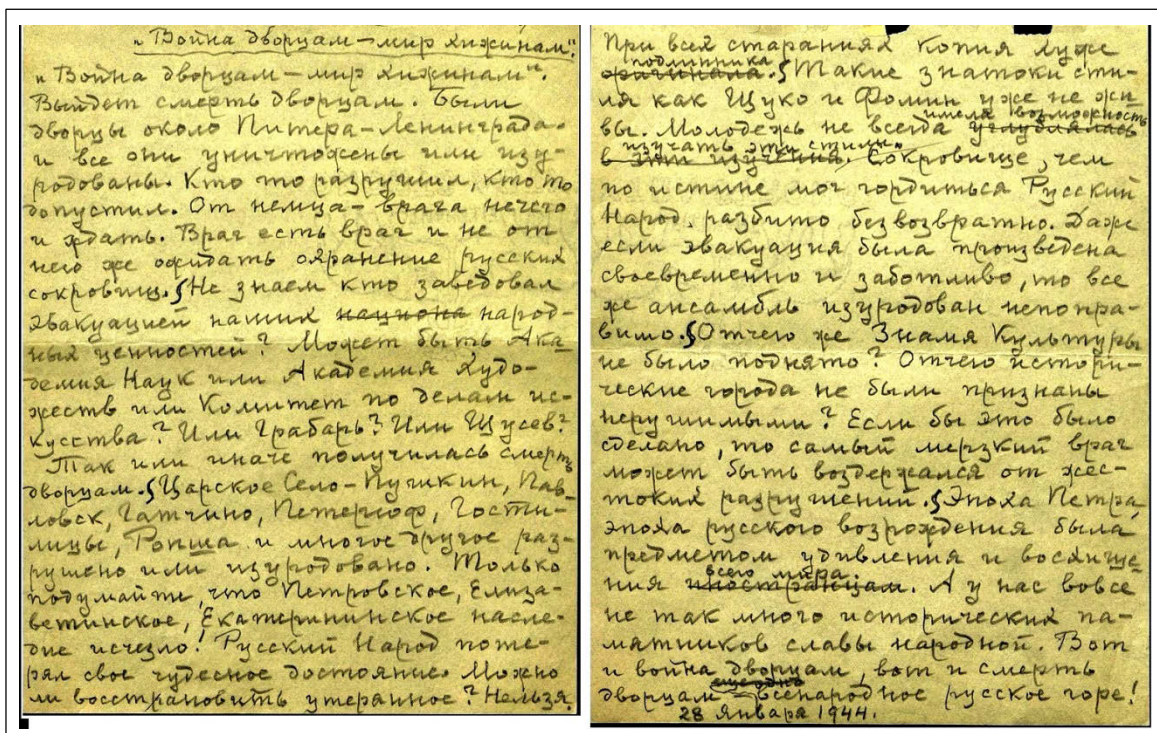 „Война дворцам — мир хижинам".
„Война дворцам — мир хижинам".
Выйдет смерть дворцам. Были
дворцы около Питера-Ленинграда
и все они уничтожены или изу-
родованы. Кто то разрушил, кто то
допустил. От немца-врага нечего
и ждать. Враг есть враг и не от
него же ожидать охранение русских
сокровищ.§ Не знаем кто заведовал
эвакуацией наших национа народ-
ных ценностей? Может быть Ака-
демия Наук или Академия Худо-
жеств или Комитет по делам ис-
кусства? Или Грабарь? Или Щусев?
Так или иначе получилась смерть
дворцам.§ Царское Село-Пушкин, Пав-
ловск, Гатчино, Петергоф, Гости-
лицы, Ропша и многое другое раз-
рушено или изуродовано. Только
подумайте, что Петровское, Елиза-
ветинское, Екатерининское насле-
дие исчезло! Русский Народ поте-
рял свое чудесное достояние. Можно
ли восстрановить утерянное? Нельзя.
При всех стараниях копия хуже
подлинника
оригинала.§ Такие знатоки сти-
ля как Щуко и Фомин уже не жи-
имела возможность
вы. Молодежь не всегда углублялась
изучать эти стили.
в эти изучения. Сокровище, чем
по истине мог гордиться Русский
Народ, разбито безвозвратно. Даже
если эвакуация была произведена
своевременно и заботливо, то все
же ансамбль изуродован непопра-
вимо.§ Отчего же Знамя Культуры
не было поднято? Отчего истори-
ческие города не были признаны
нерушимыми? Если бы это было
сделано, то самый мерзкий враг
может быть воздержался от жес-
токих разрушений.§ Эпоха Петра,
эпоха русского возрождения была
предметом удивления и восхище-
всего мира.
ния иностранцам. А у нас вовсе
не так много исторических па-
мятников славы народной. Вот
и война дворцам, вот и смерть
еще одно
дворцам всенародное русское горе!
28 Января 1944.